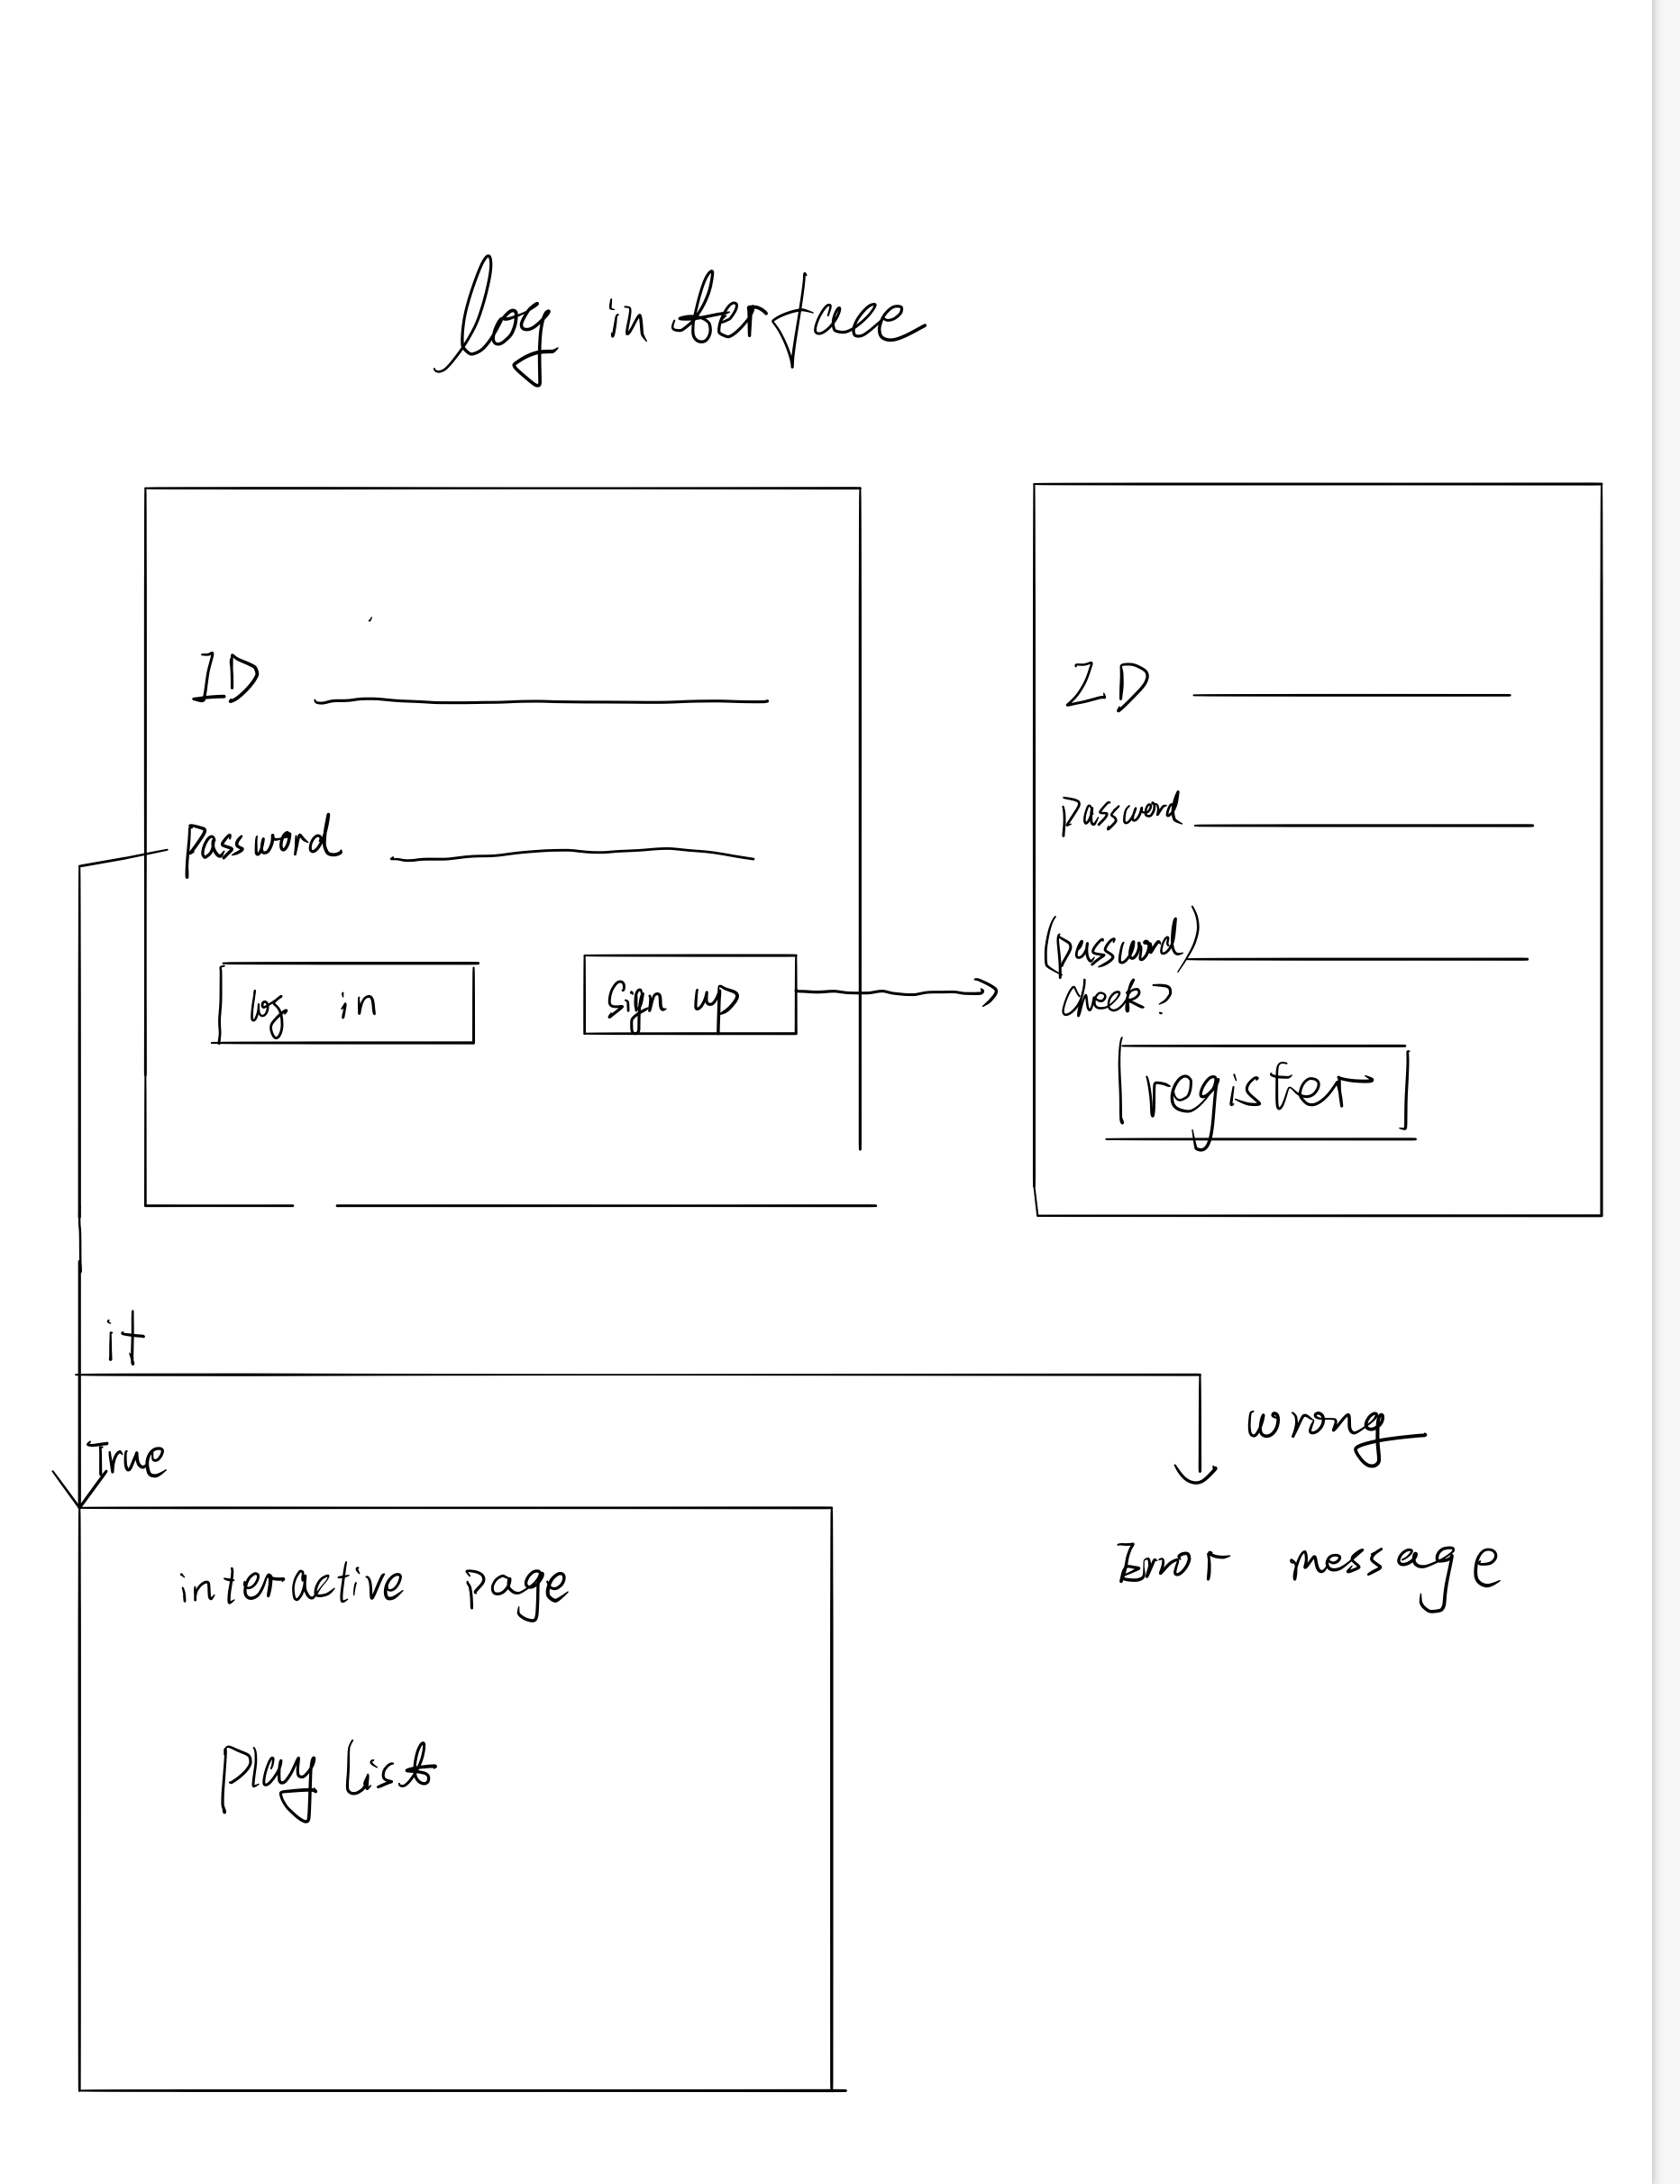 log interface
ID
password
log in
sign up
ID
password
(password)
check?
register
if
True
wrong
interactive page
Error message
Play list